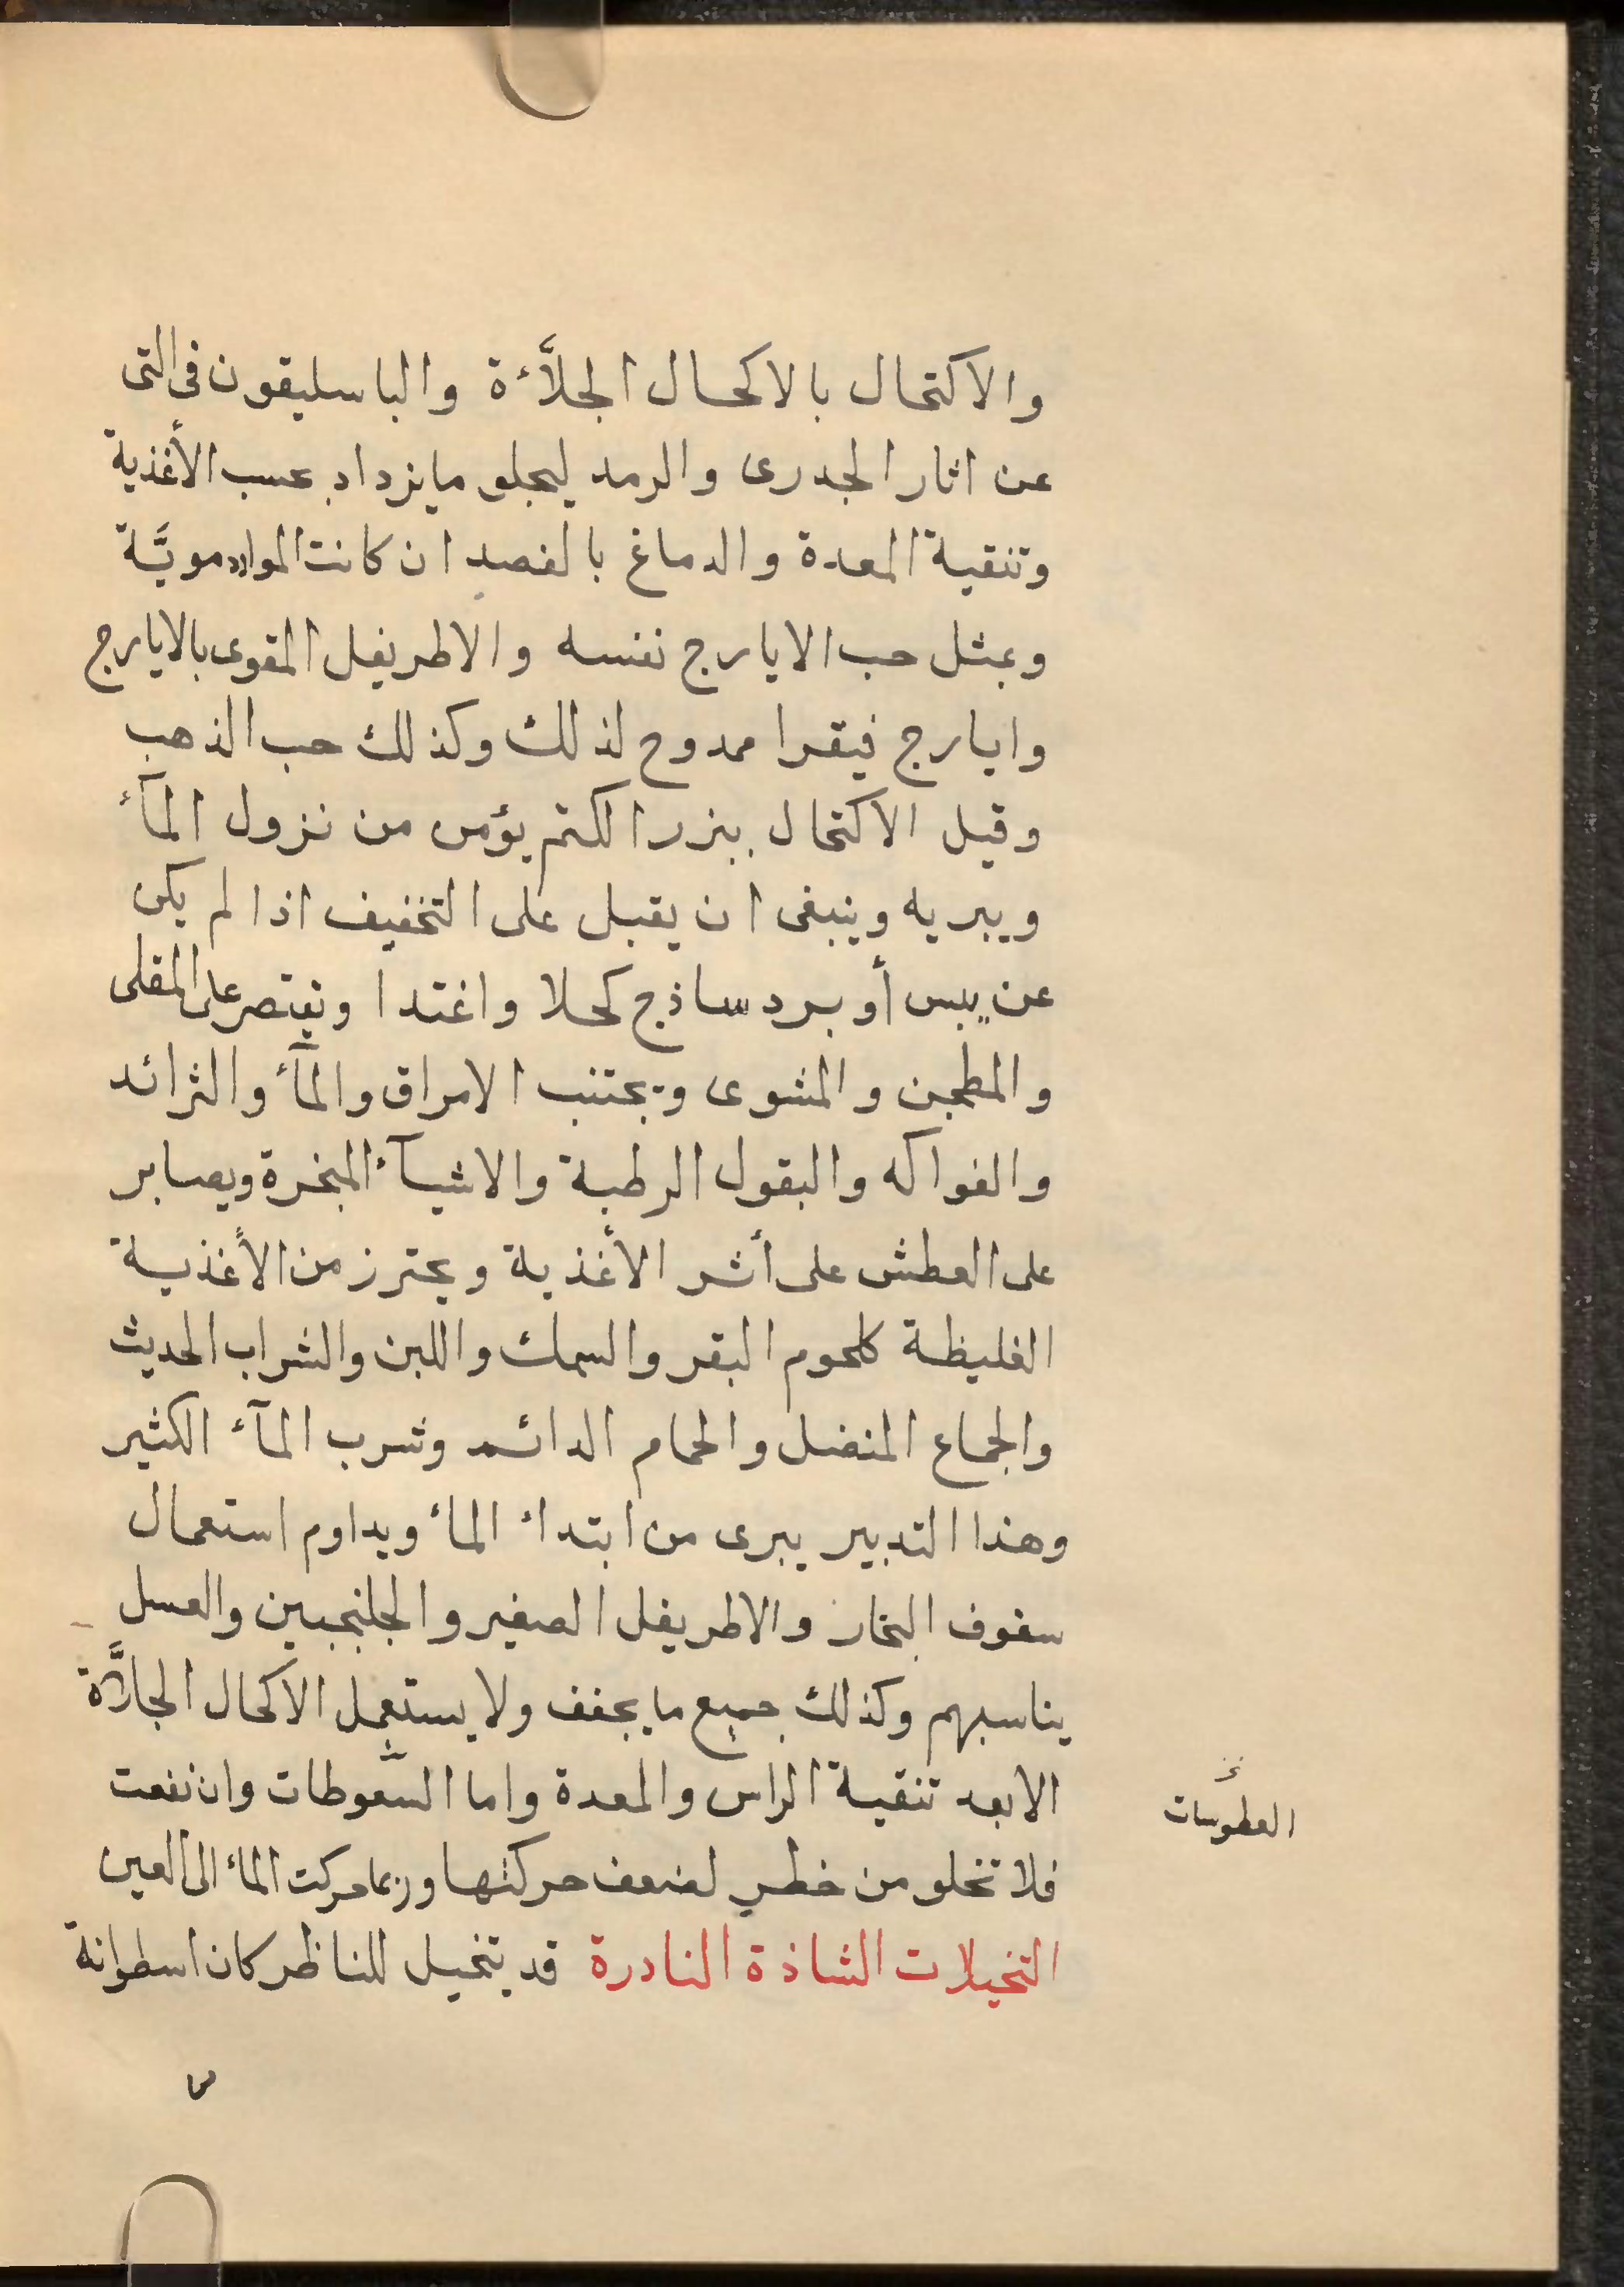 والاكتحال بالاكحال الجلّاءة والباسليقون فى التى
عن اثار الجدرى والرمد ليجلو مايزداد بحسب الأغذية
وتنقية المعدة والدماغ بالفصد ان كانت المواد دمويّة
وبمثل حب الايارج نفسه والاطريفل المقوى بالايارج
وايارج فيقرا ممدوح لذلك وكذلك حب الذهب
وقيل الاكتحال ببزر الكتم يؤمن من نزول المآء
ويبريه وينبغى ان يقبل على التخفيف اذا لم يكن
عن يبس أو برد ساذج كحلا واغتدا ويقتصر على المقلى
والمطجن والمشوى ويجتنب الامراق والمآء والثرائد
والفواكه والبقول الرطبة والاشيآء المبخرة ويصابر
على العطش على أثر الأغذية ويحترز من الأغذية
الغليظة كلحوم البقر والسمك واللبن والشراب الحديث
والجماع المنضل والحمام الدائم وشرب المآء الكثير
وهذا التدبير يبرى من ابتداء الماء ويداوم استعمال
سفوف البخار والاطريفل الصغير والجلنجبين والعسل
يناسبهم وكذلك جميع ما يجفف ولا يستعمل الاكحال الجلاّءة
الابعد تنقية الراس والمعدة واما السّعوطات وان نفعت
العطوسات
فلا تخلو من خطر لضعف حركتها وربما حركت الماء الى العين
التخيلات الشاذة النادرة قد يتخيل للناظر كان اسطوانة